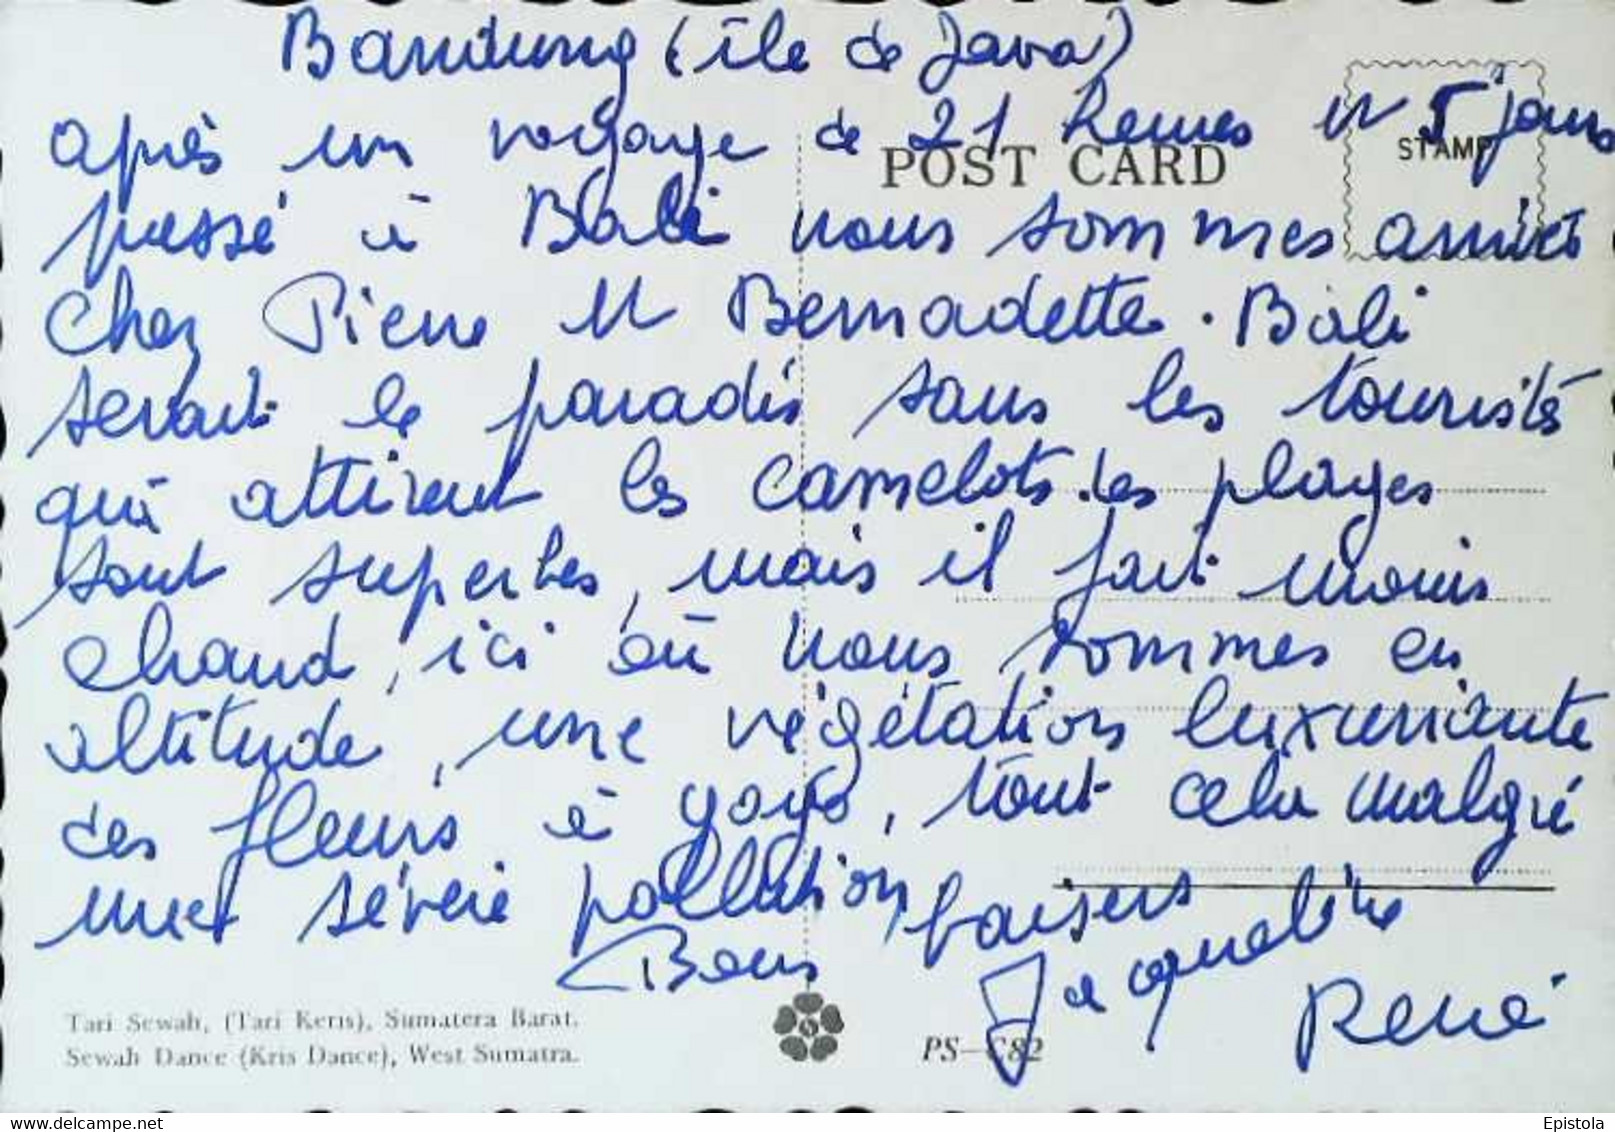 Bandung (île de Java)
après un voyage de 21 heures et 5 jours
POST CARD
STAMP
passé à Bali nous sommes arrivés
chez Pierre et Bernadette. Bali
serait le paradis sans les touristes
qui attirent les camelots. les plages
sont superbes, mais il fait moins
chaud, ici où nous sommes en
altitude, une végétation luxuriante
des fleurs à gogo, tout cela malgré
une sévère pollution,
Bons baisers
Jacqueline
René
Tari Sewah, (Tari Keris), Sumatera Barat.
Sewah Dance (Kris Dance), West Sumatra.
PS-C82
www.delcampe.net
Epistola